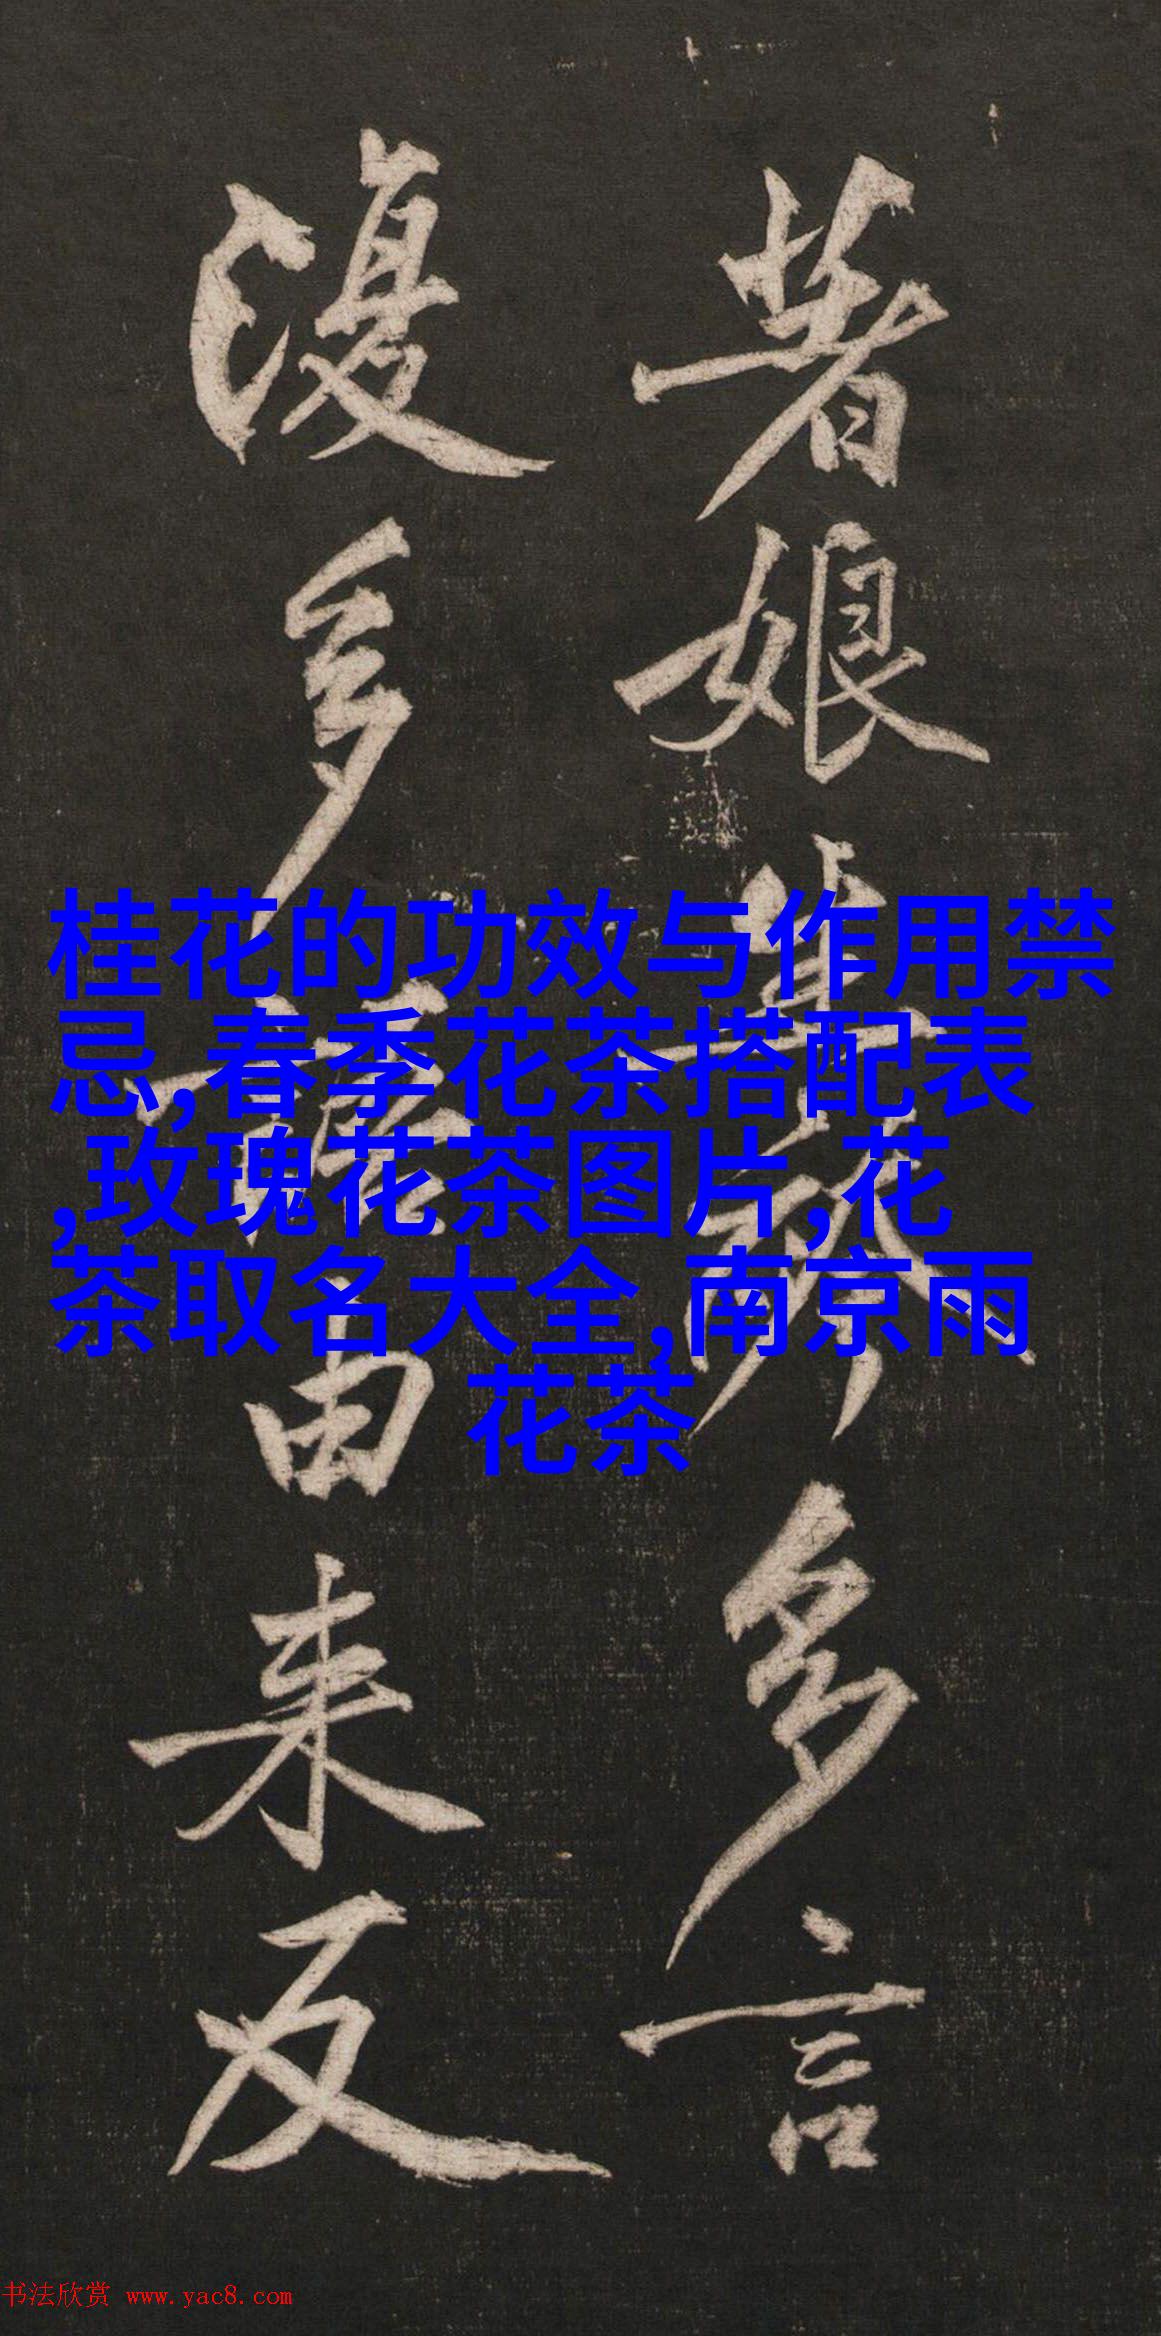 娘 多言
多 由来反
桂花的功效与作用禁
忌,春季花茶搭配表
,玫瑰花茶图片,花
茶取名大全,南京雨
花茶
书法欣赏 www.yac8.com